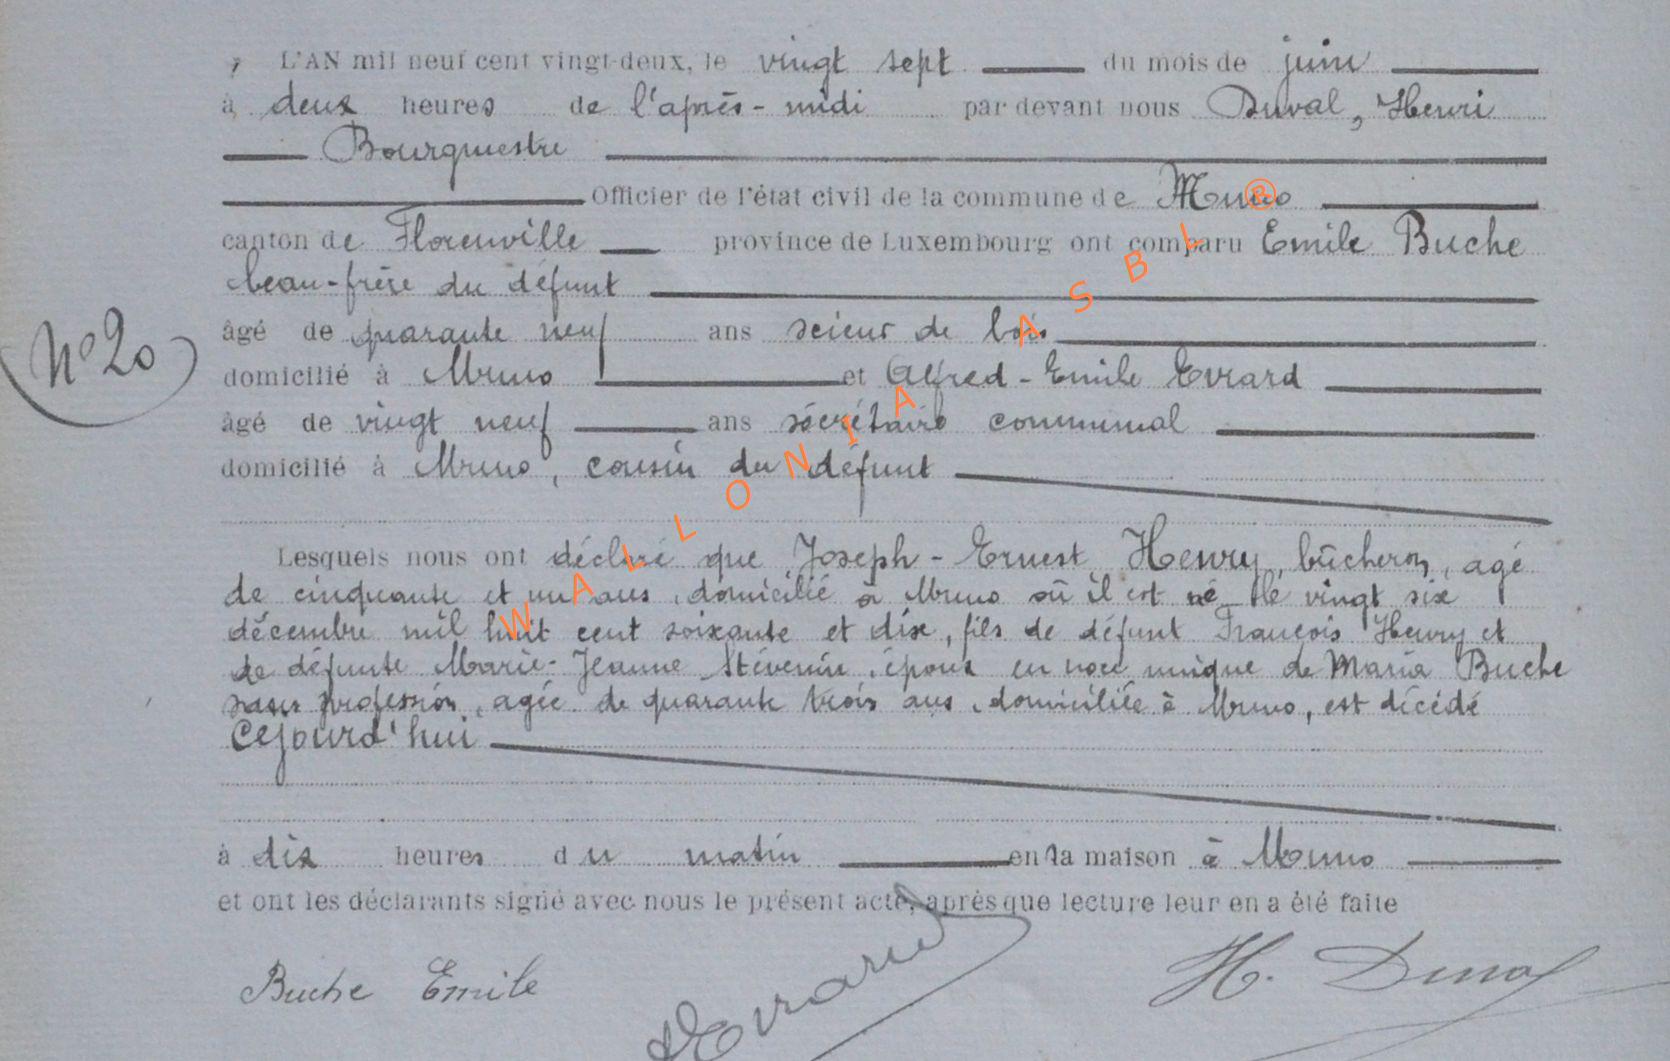 , L'AN mil neuf cent vingt-deux, le vingt sept du mois de juin
à deux heures de l'après-midi par devant nous Duval, Henri
Bourgmestre
Officier de l'état civil de la commune de Muno ®
canton de Florenville province de Luxembourg ont comparu Emile Buche
beau-frère du défunt
âgé de quarante neuf ans scieur de bois
N° 20
domicilié à Muno et Alfred-Emile Evrard
âgé de vingt neuf ans sécrétaire communal
domicilié à Muno, cousin du défunt
Lesquels nous ont déclaré que Joseph-Ernest Henry, bûcheron, agé
de cinquante et un ans, domicilié à Muno où il est né le vingt six
décembre mil huit cent soixante et dix, fils de défunt François Henry et
de défunte Marie-Jeanne Stévenin, époux en noce unique de Maria Buche
sans profession, agée de quarante trois ans, domiciliée à Muno, est décédé
Cejourd'hui
à dix heures du matin en la maison à Muno
et ont les déclarants signé avec nous le présent acte, après que lecture leur en a été faite
Buche Emile
Evrard
H. Duval
WALLONIA ASBL